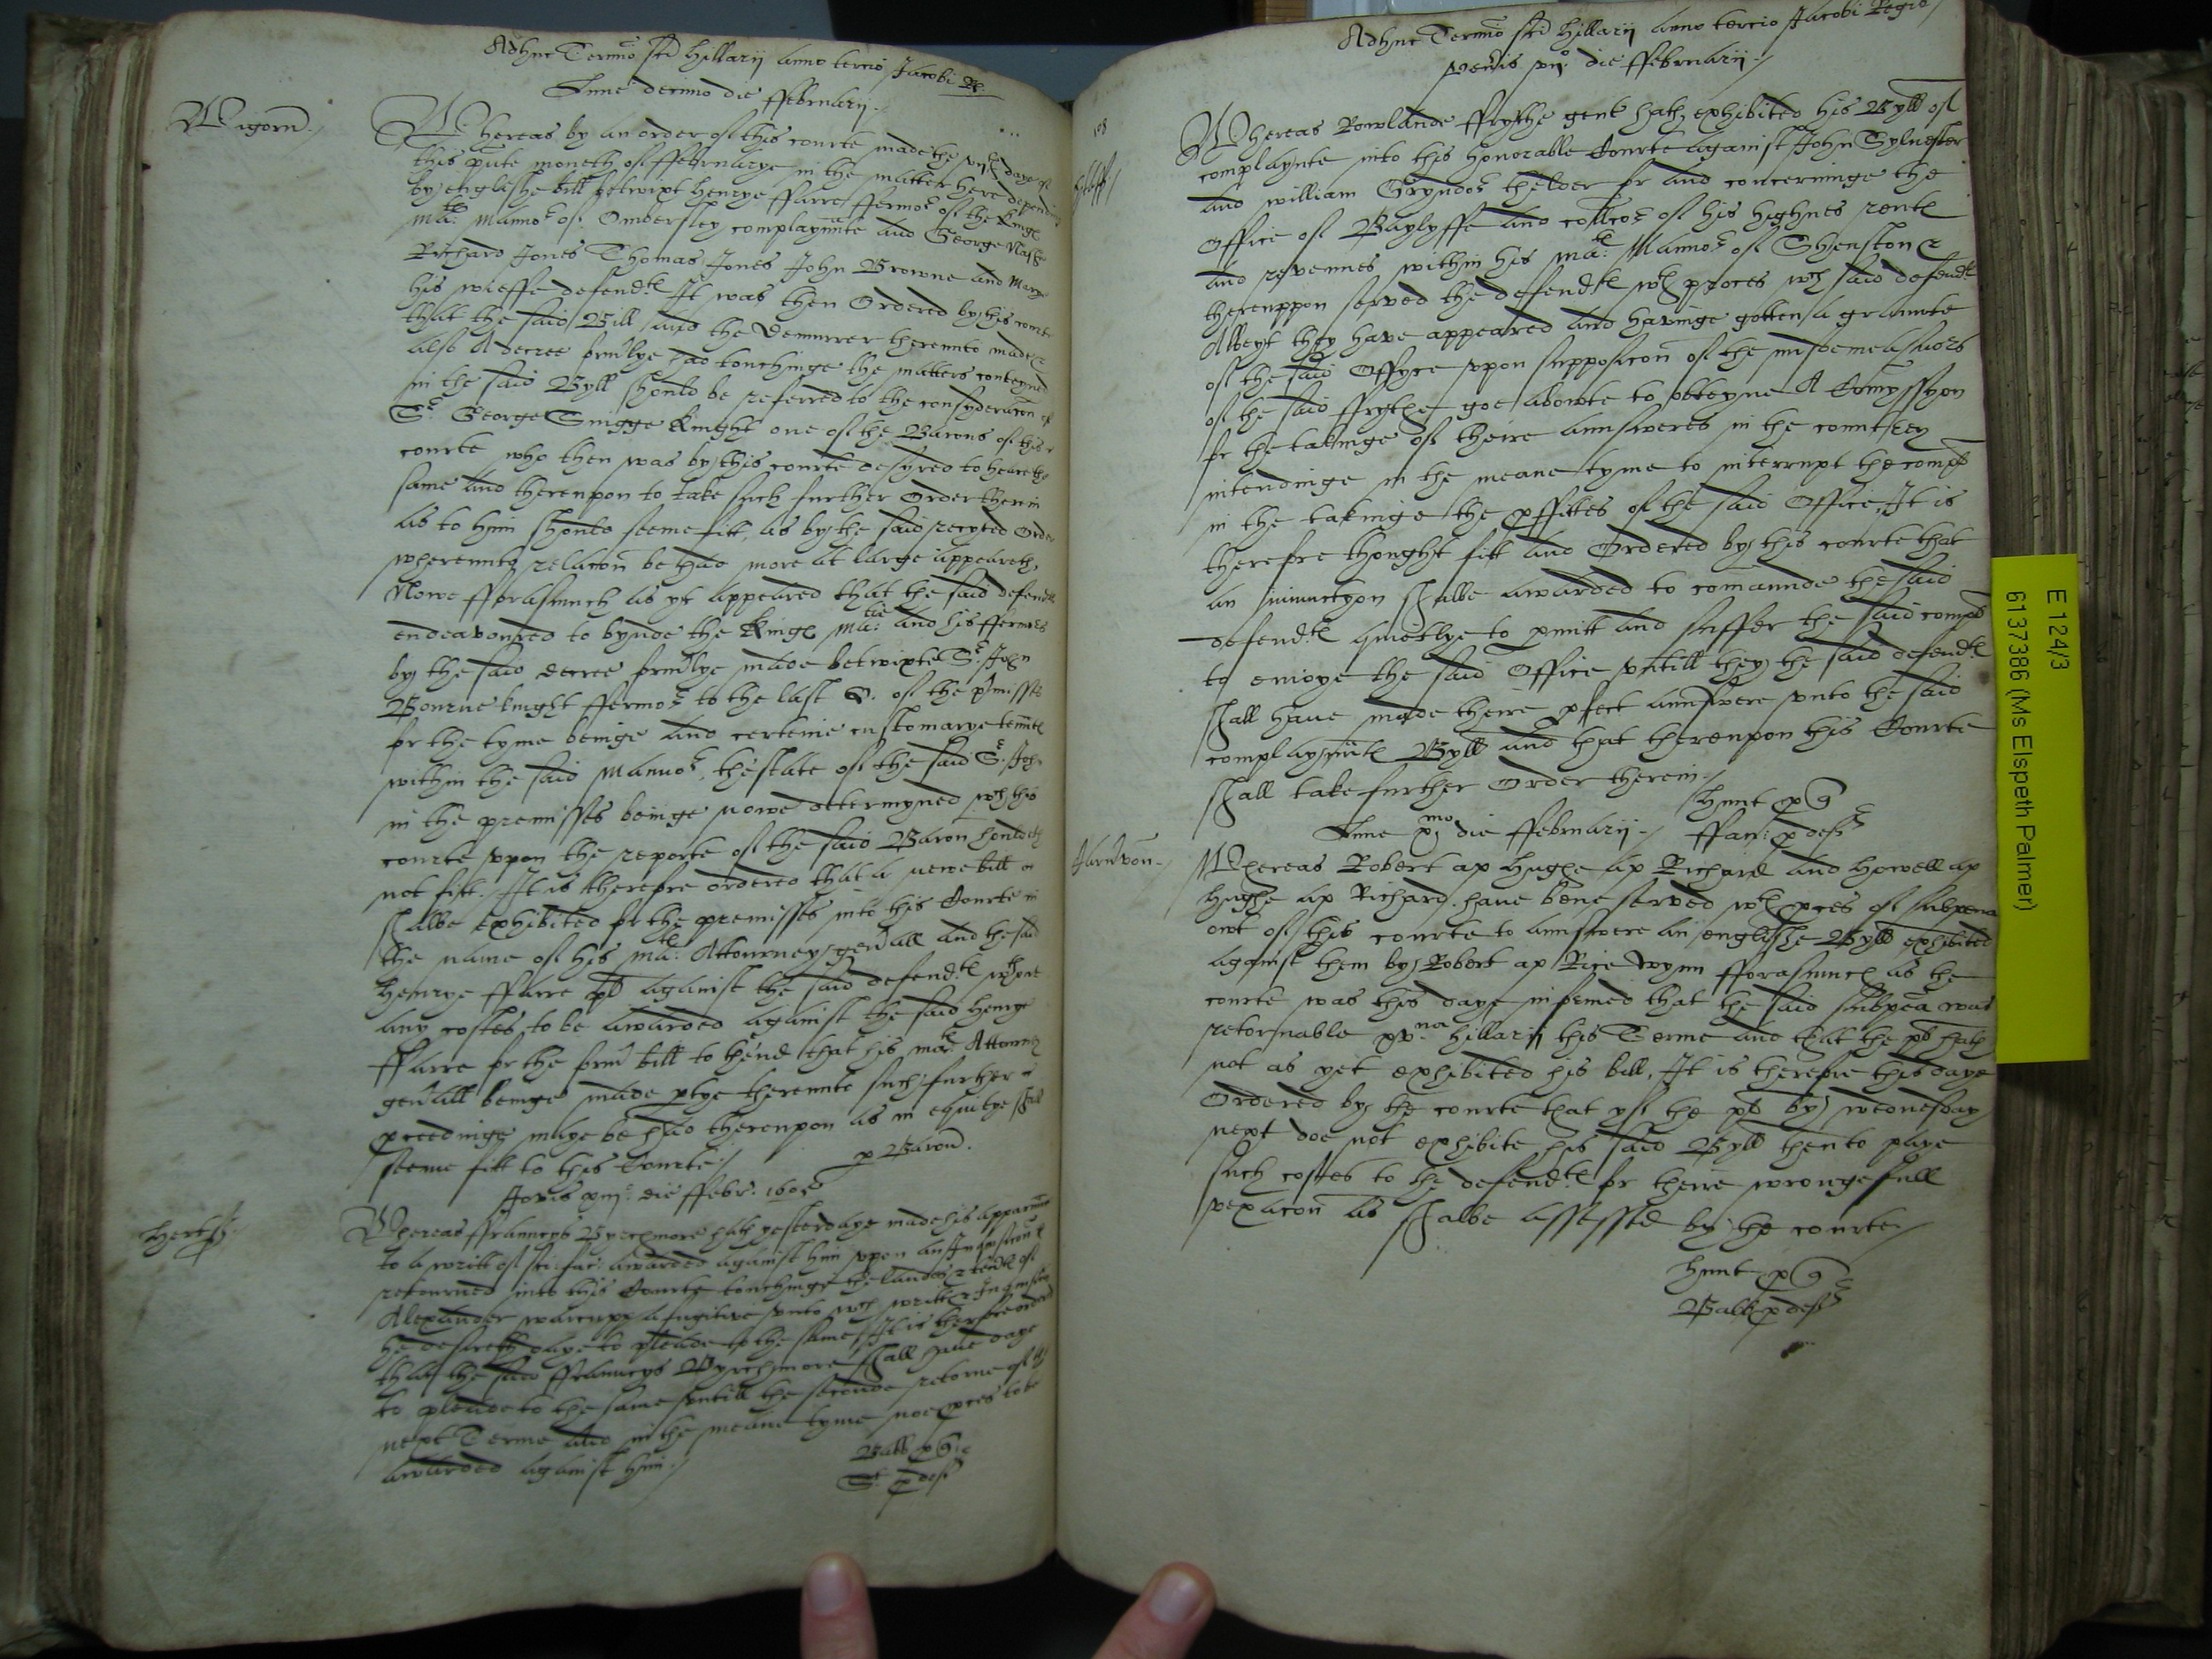 Adhuc Termio sci Hillarij anno tercio Jacobi R
Lune decimo die ffebruarij
Wigorn
Whereas by an order of this courte made the daye of
this pnte moneth of ffebruarye in the matter here depending
by englishe bill betwixt Henrye ffarre ffermor of the Kinge
Matie Mannor of Ombersley complaynnte and George Nashe
Richard Jones Thomas Jones John Browne and Marye
his wieffe defendte It was then Ordered by this courte
that the said Bill and the Demurrer thereunto made &
also A decree formlye had touchinge the matters conteyned
in the said Byll should be referred to the consyderacon of
Sr George Snigge Knight one of the Barons of this
courte who then was by this courte desyred to heare the
same and thereupon to take such further Order therin
as to him should seeme fitt, as by the said recyted Order
whereunto relacon be had more at large appeareth,
Nowe fforasmuch as yt appeared that the said defendte
endeavoured to bynde the Kinge Matie and his ffermors
by the said decree formlye made betwixte Sr John
Bourne knight ffermor to the last Q. of the pmisses
for the tyme beinge and certeine customarye tennte
within the said Mannor, thestate of the said Sr John
in the premisses beinge nowe determyned wch this
courte upon the reporte of the said Baron houldeth
not fitt. It is therefore ordered that a newe bill
shalbe exhibited for the premisses into this Courte in
the name of his Mate Attourney genrall and the said
Henrye ffarre pl against the said defendte wthout
any costes to be awarded against the said Henrye
ffarre for the form bill to thend that his mate Attorney
genrall beinge made ptye thereunto such further
pceedinge maye be had thereupon as in equitye shall
seeme fitt to this Courte
p Baron.
Jovis xiijo die ffebr: 1605
Hertf
Whereas ffrauncys Byrchmore hath yesterdaye made his apparaunce
to a writt of sci: fac: awarded against him upon an Inquisicon
retourned into this Courte touchinge the landes & tente of
Alexander a fugitive unto wch writt & Inquisicon
he desireth daye to pleade to the same, It is therfore ordered
that the said ffrauncys Byrchmore shall have daye
to pleade to the same untill the seconde retorne of the
next Terme and in the meane tyme noe pces to be
awarded against him
Ballp q
S: p def
108
Adhuc Termio sci Hillarij anno tercio Jacobi Regis
die ffebruarij
Whereas Rowlande ffrythe gent hath exhibited his Byll of
complaynte into this honorable Courte against John Sylvester
and william Gryndor thelder for and concerninge the
Office of Baylyffe and collcor of his highnes rente
and revenues within his Mate Mannor of Shenston &
thereuppon served the defendte wth proces wch said defendte
Albeyt they have appeared and havinge gotten a graunte
of the said Offyce upon supposicon of the misdemeasnors
of the said ffrythe goe aboute to obteyne A Comyssyon
for the takinge of theire aunsweres in the countrey
intendinge in the meane tyme to interrupt the compl
in the takinge the pffittes of the said Office, It is
therefore thought fitt and Ordered by this courte that
an iniunctyon shalbe awarded to comaunde the said
defendte quietlye to pmitt and suffer the said compl
to enioye the said Office untill they the said defendte
shall have made theire pfect aunswere unto the said
complaynnte Byll and that thereupon this Courte
shall take further Order therein
Hunt p q
ffan: p def
Lune xmo die ffebruarij
Carnarvon
Whereas Robert ap Hughe ap Richard and Howell ap
Hughe ap Richard have bene served wth pces of subpena
owt of this courte to aunswere an englishe Byll exhibited
against them by Robert ap Rice Wynn fforasmuch as the
courte was this daye informed that the said subpena was
retornable xvna Hillarij this Terme and that the pl hath
not as yet exhibited his bill, It is therefore this daye
Ordered by the courte that yf the pl by wednesday
next doe not exhibite his said Byll then to paye
such costes to the defendte for theire wrongefull
vexacon as shalbe assessed by the courte
Hunt p q
Ball p def
E 124/3
6137386 (Ms Elspeth Palmer)